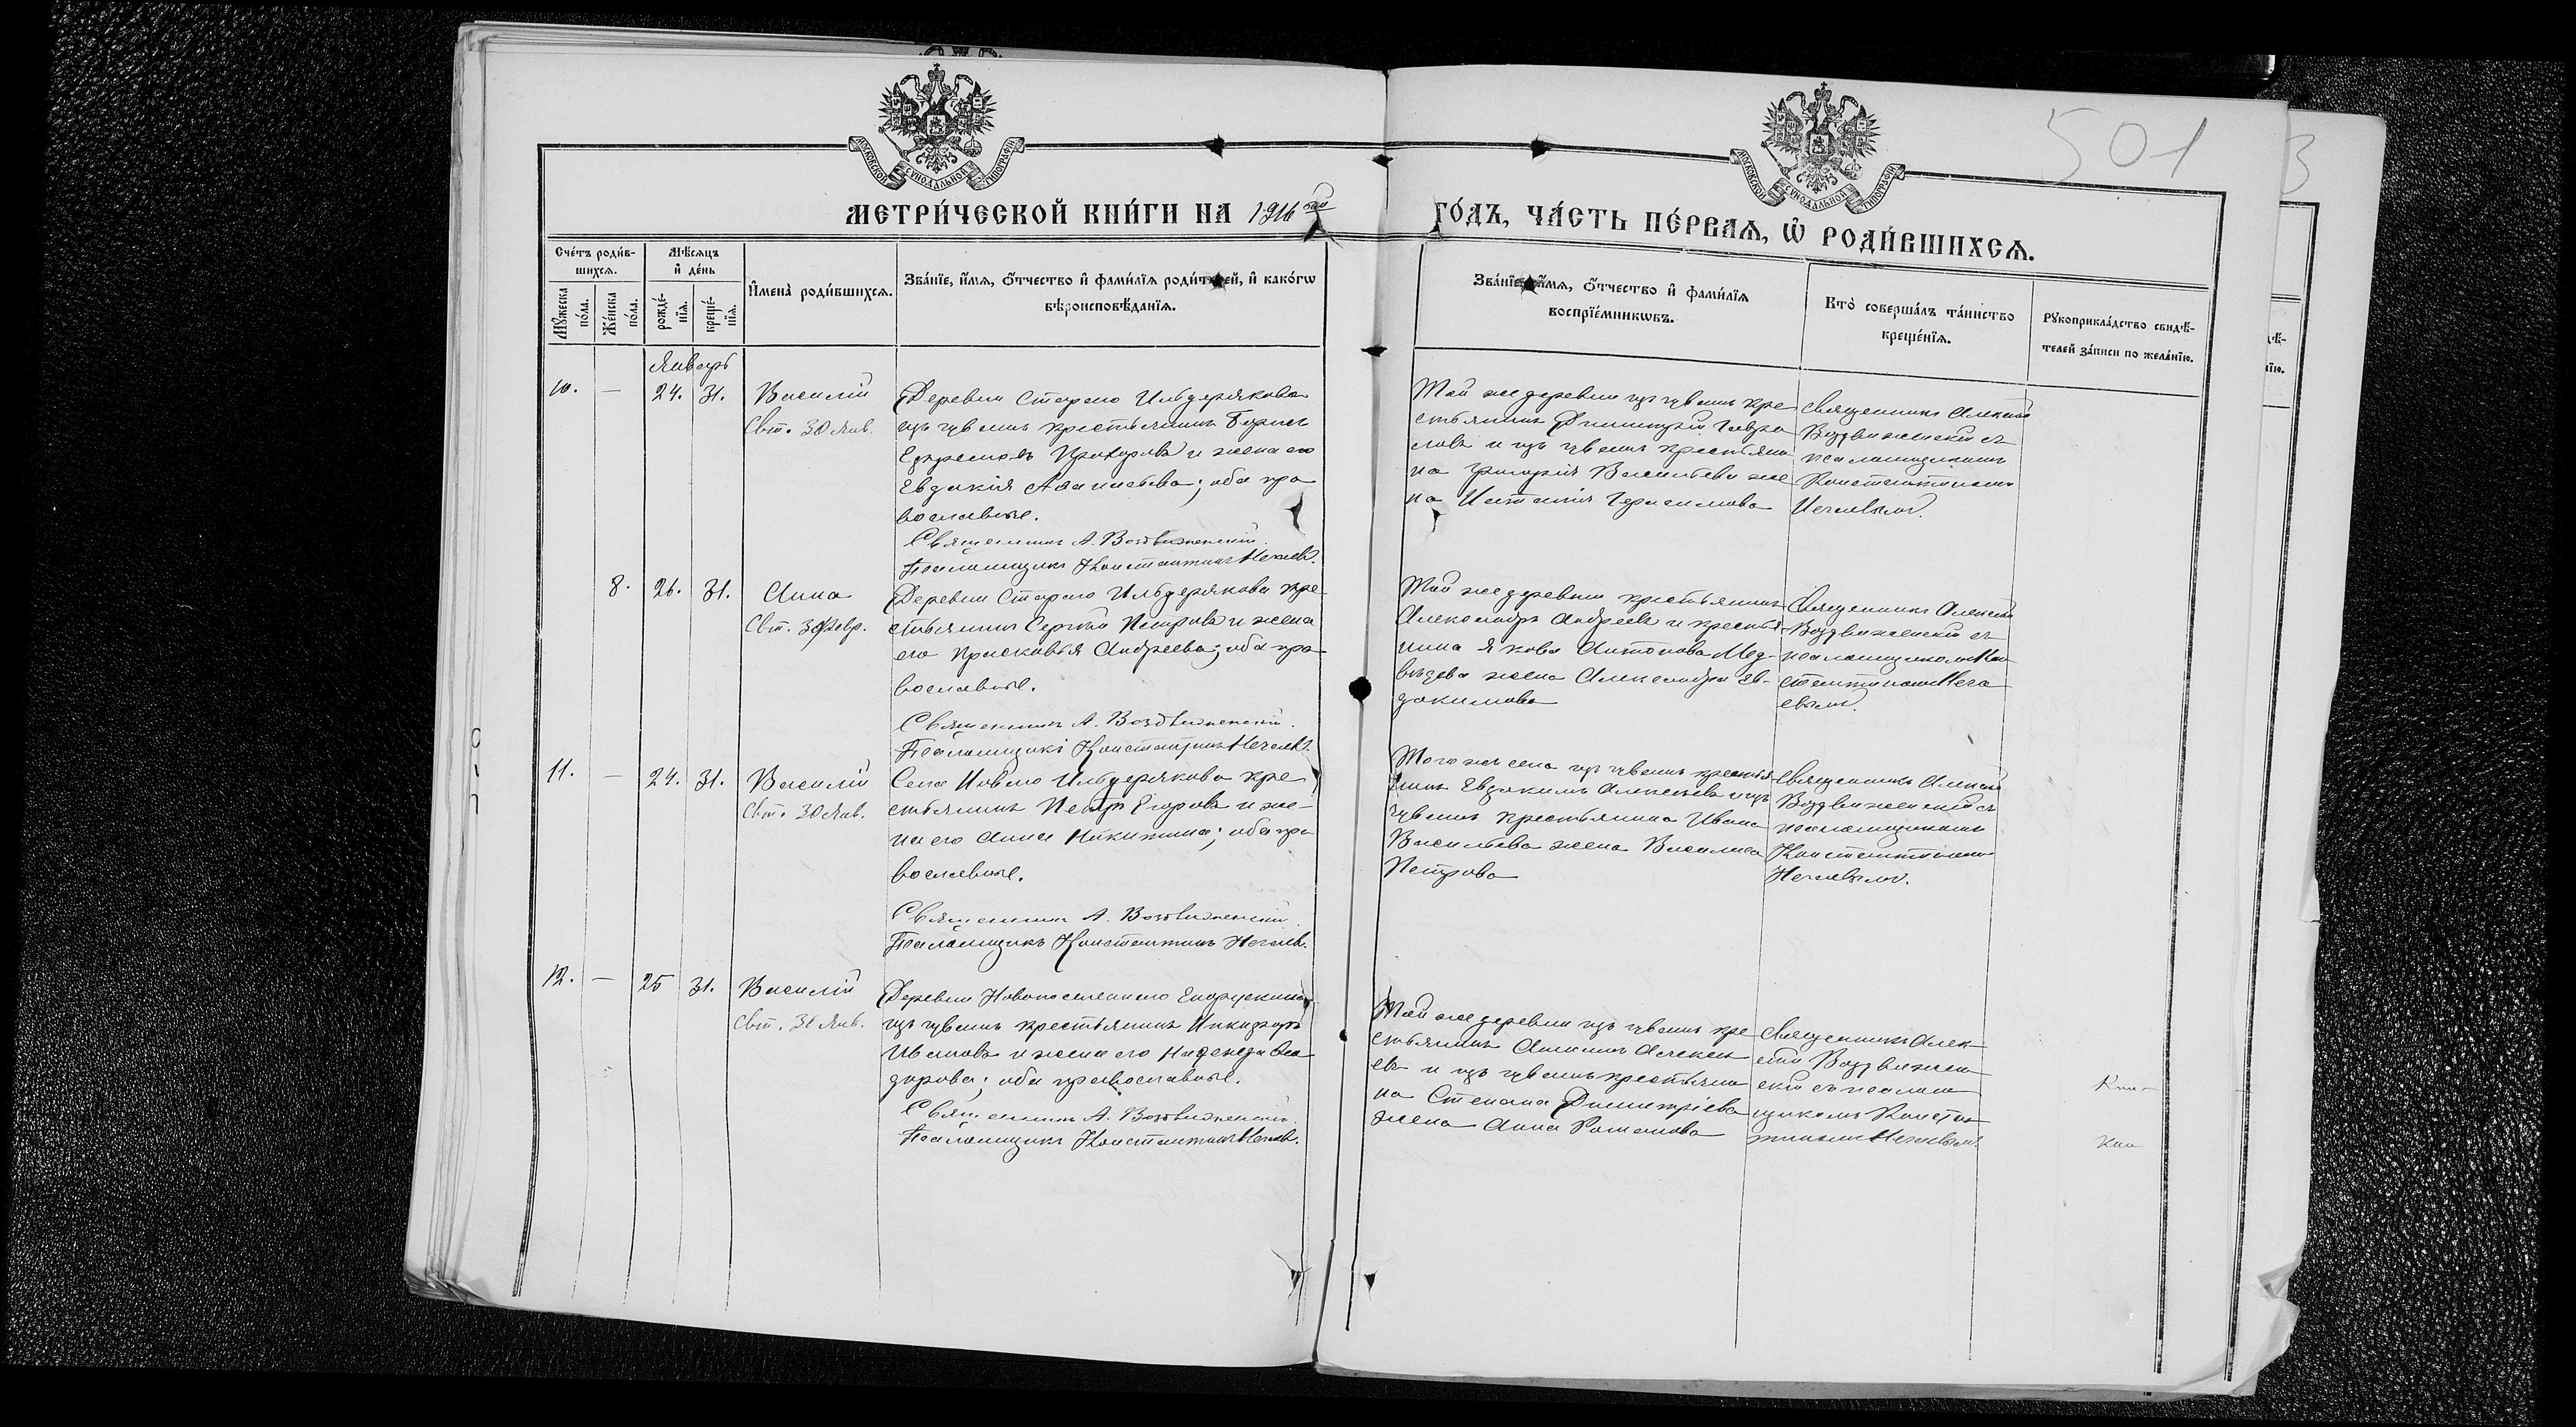 501
3
МОСКОВСКОЙ СѴНОДАЛЬНОЙ ТИПОГРАФІИ
МОСКОВСКОЙ СѴНОДАЛЬНОЙ ТИПОГРАФІИ
МЕТРИ́ЧЕСКОЙ КНИ́ГИ НА 1916 ый ГО́ДЪ, ЧА́СТЬ ПЕ́РВАѦ, Ѡ҆ РОДИ́ВШИХСѦ.
Сче́тъ роди́в-
шихсѧ.
Мꙋ́жеска по́ла.
Же́нска по́ла.
Мѣ́сѧцъ
и҆ де́нь
рожде́-
нїѧ.
креще́-
нїѧ.
И҆мена̀ роди́вшихсѧ.
Зва́нїе, и҆́мѧ, ѻ҆́тчество и҆ фами́лїѧ роди́телей, и҆ како́гѡ
вѣроисповѣ́данїѧ.
Зва́нїе, и҆́мѧ, ѻ҆́тчество и҆ фами́лїѧ
воспрїе́мникѡвъ.
Кто̀ соверша́лъ та́инство
креще́нїѧ.
Рꙋкоприкла́дство свидѣ́-
телей за́писи по жела́нїю.
Январь
10. — 24. 31. Василій
Свт. 30 Янв.
Деревни Стараго Ильдерякова
изъ чувашъ крестьянинъ Борисъ
Ефремовъ Прохоровъ и жена его
Евдокія Аѳанасьева; оба пра
вославные.
Священникъ А. Воздвиженскій.
Псаломщикъ Константинъ Нечаевъ.
Той же деревни изъ чувашъ кре
стьянинъ Димитрій Гаври
ловъ и изъ чувашъ крестьяни
на Григорія Васильева же
на Наталія Герасимова
Священникъ Алексій
Воздвиженскій съ
псаломщикомъ
Константиномъ
Нечаевымъ.
8. 26. 31. Анна
Свт. 3 Февр.
Деревни Стараго Ильдерякова кре
стьянинъ Сергій Петровъ и жена
его Прасковья Андреева; оба пра
вославные.
Священникъ А. Воздвиженскій.
Псаломщикъ Константинъ Нечаевъ.
Той же деревни крестьянинъ
Александръ Андреевъ и крестья
нина Якова Антонова Мед-
вѣдева жена Александра Ев-
докимова
Священникъ Алексій
Воздвиженскій съ
псаломщикомъ Кон
стантиномъ Неча
евымъ.
11. — 24. 31. Василій
Свт. 30 Янв.
Села Новаго Ильдерякова кре
стьянинъ Петръ Егоровъ и же-
на его Анна Никитина; оба пра
вославные.
Священникъ А. Воздвиженскій.
Псаломщикъ Константинъ Нечаевъ.
Того же села изъ чувашъ крестья
нинъ Евдокимъ Алексѣевъ и изъ
чувашъ крестьянина Ивана
Васильева жена Василиса
Петрова
Священникъ Алексій
Воздвиженскій съ
псаломщикомъ
Константиномъ
Нечаевымъ.
12. — 25 31. Василій
Свт. 30 Янв.
Деревни Новопоселеннаго
изъ чувашъ крестьянинъ Никифоръ
Ивановъ и жена его Надежда Ѳео
дорова; оба православные.
Священникъ А. Воздвиженскій.
Псаломщикъ Константинъ Нечаевъ.
Той же деревни изъ чувашъ кре
стьянинъ Алексѣ
евъ и изъ чувашъ крестьяни
на Степана Димитріева
жена Анна Романова
Священникъ Алек-
сій Воздвижен
скій съ псалом
щикомъ Констан
тиномъ Нечаевымъ.